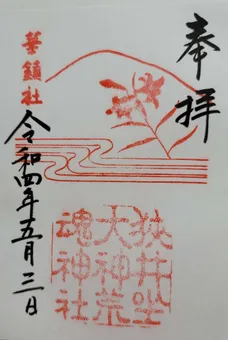 奉拝
狭井坐
大神荒
魂神社
華鎮社
令和四年五月三日